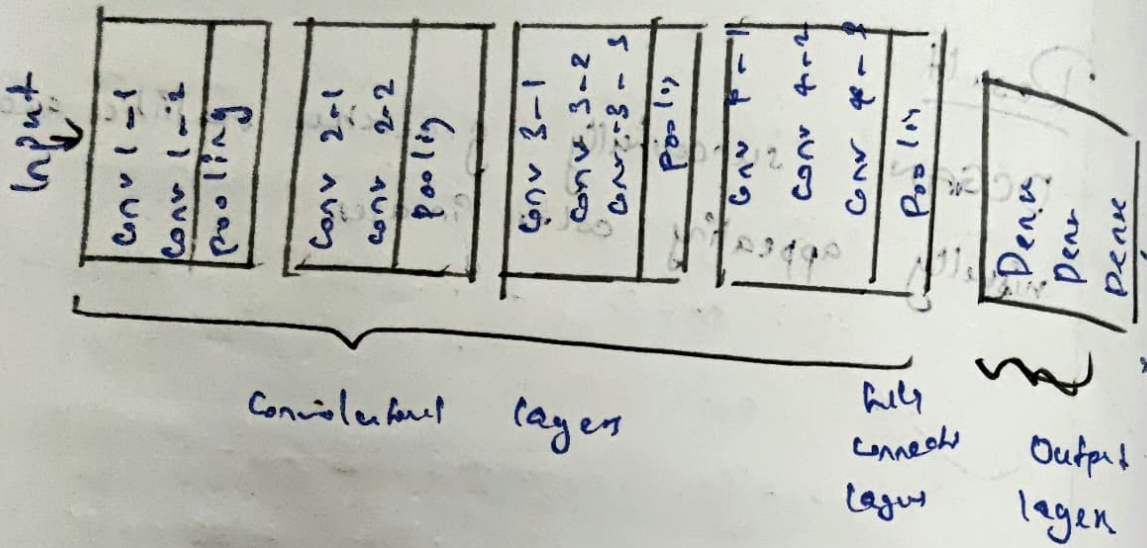 Input
Conv 1-1
Conv 1-2
Pooling
Conv 2-1
Conv 2-2
Pooling
Conv 3-1
Conv 3-2
Conv 3-3
Pooling
Conv 4-1
Conv 4-2
Conv 4-3
Pooling
Dense
Dense
Dense
Convolutional layers
Fully
connected
layers
Output
layer